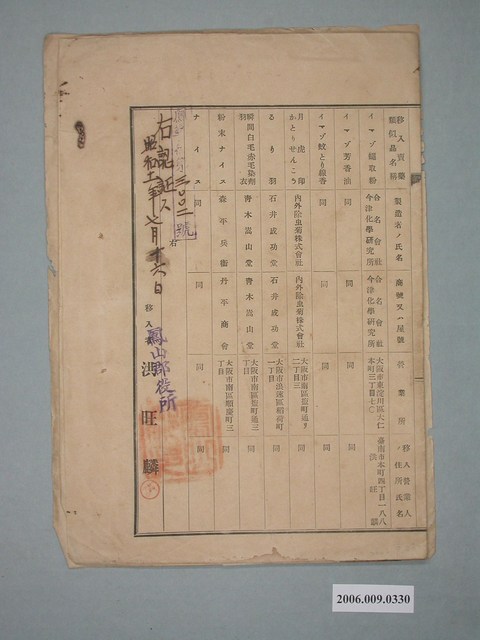 移入賣藥類似品名
製造者ノ氏名
商號又ハ屋號
營業所
移入營業人ノ住所氏名
イマヅ蠅取粉
合名會社今津化學研究所
合名會社今津化學研究所
大阪市東淀川區大仁本町三丁目七〇
臺南市本町四丁目一八八
洪旺麟
イマヅ芳香油
同
同
同
同
イマヅ蚊とり線香
同
同
同
同
月虎印かとりせんこう
內外除虫菊株式會社
內外除虫菊株式會社
大阪市南區鹽町通リ二丁目三
同
るり羽
石井成功堂
石井成功堂
大阪市浪速區稻荷町一丁目
同
瞬間白毛赤毛染劑羽衣
青木嵩山堂
青木嵩山堂
大阪市南區鹽町通三丁目
同
粉末ナイス
森平兵衞
丹平商會
大阪市南區順慶町三丁目
同
ナイス
同
同
同
同
三〇〇二號
右
右認証ス
昭和十一年七月十六日
鳳山郡役所
移入者 洪旺麟
2006.009.0330